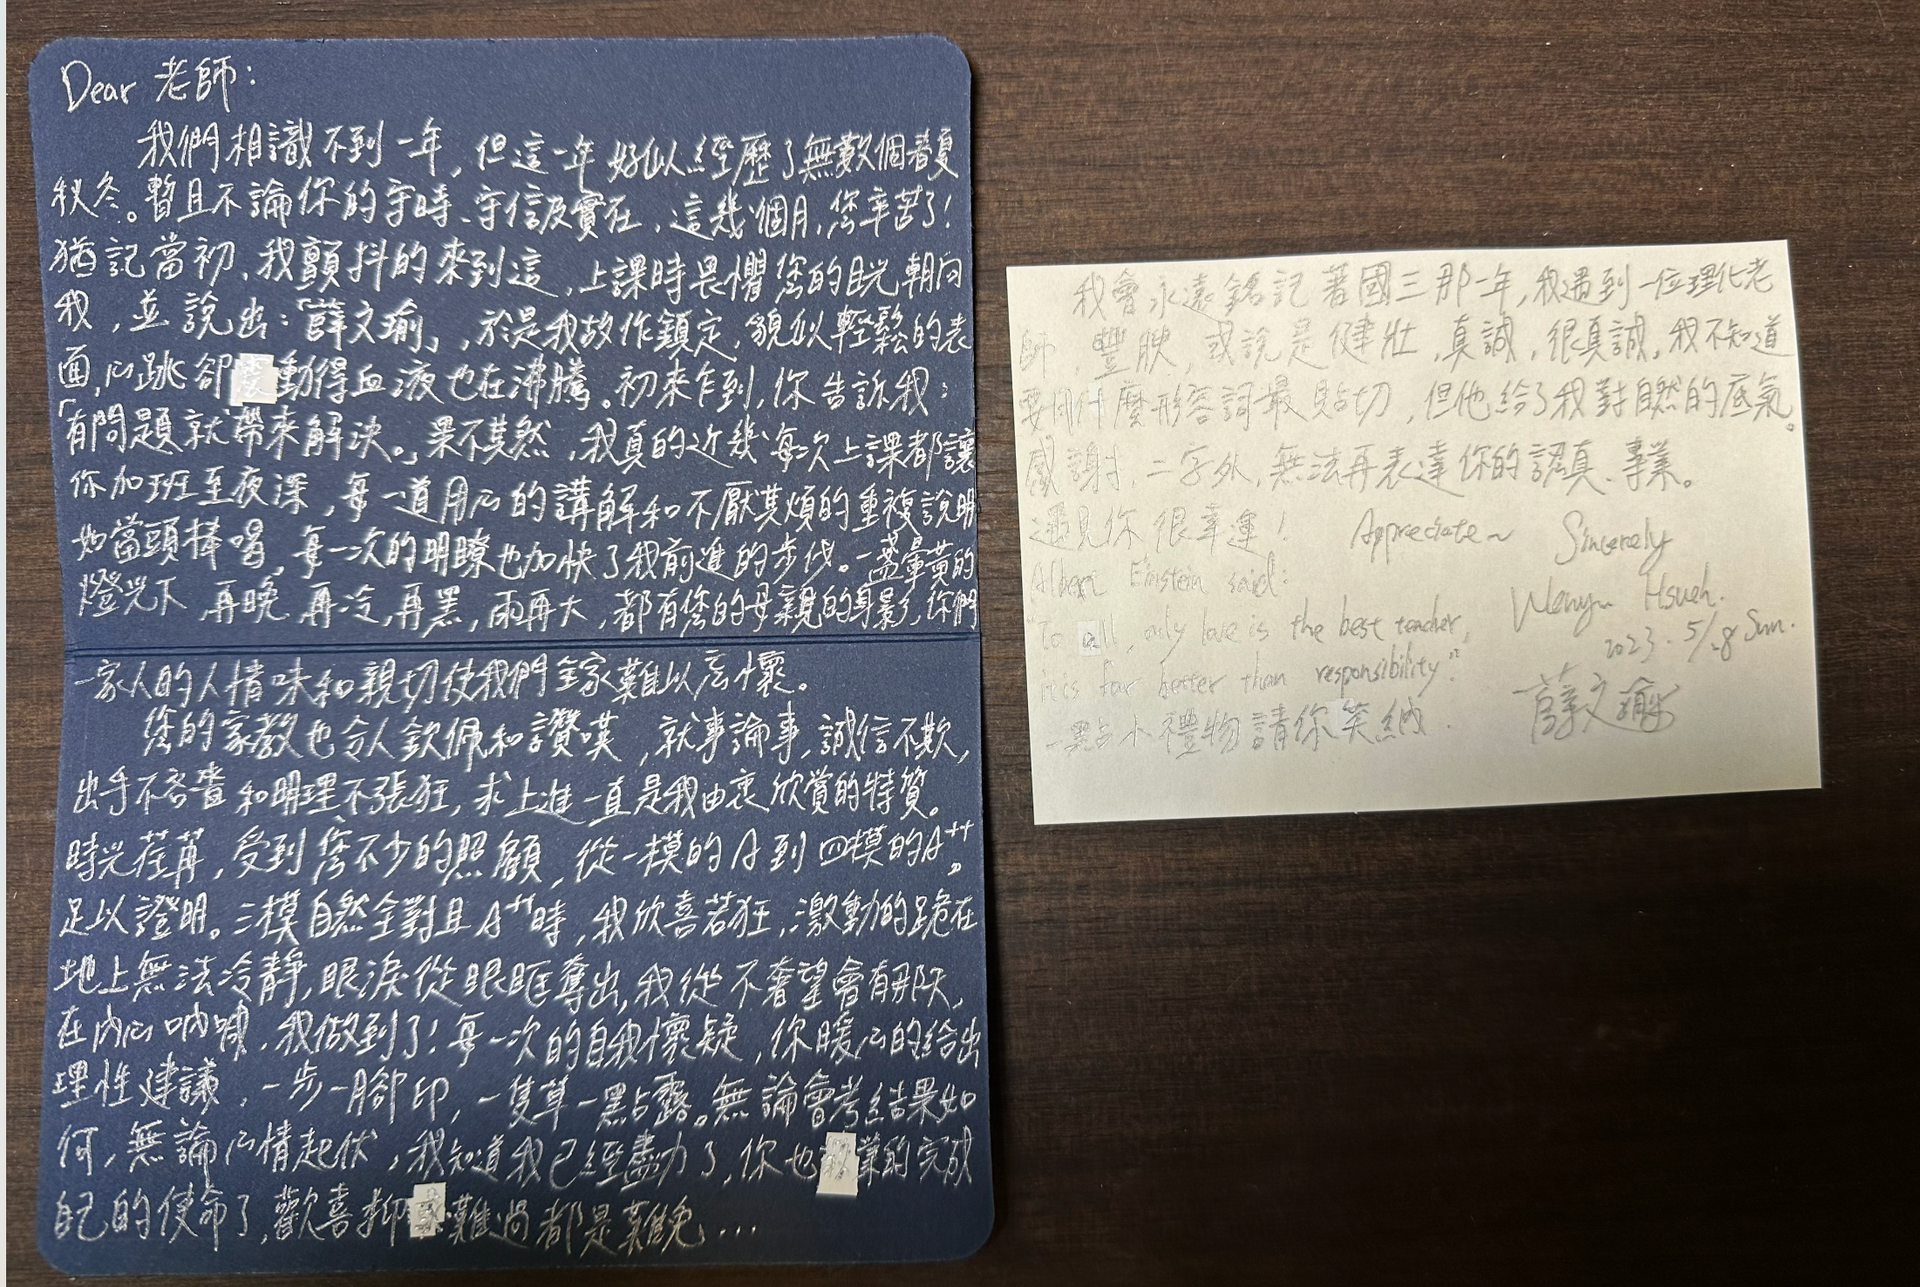 Dear 老師：
我們相識不到一年，但這一年好似經歷了無數個春夏
秋冬。暫且不論你的守時、守信及實在，這幾個月，您辛苦了！
猶記當初，我顫抖的來到這，上課時畏懼您的目光朝向
我，並說出：「薛文瑜」，於是我故作鎮定，貌似輕鬆的表
面，心跳卻動得血液也在沸騰。初來乍到，你告訴我：
「有問題就帶來解決。」果不其然，我真的近幾乎每次上課都讓
你加班至夜深，每一道用心的講解和不厭其煩的重複說明
如當頭棒喝，每一次的明瞭也加快了我前進的步伐。一盞暈黃的
燈光下，再晚，再冷，再黑，雨再大，都有您的母親的身影，你們
一家人的人情味和親切使我們全家難以忘懷。
您的家教也令人欽佩和讚嘆，就事論事，誠信不欺，
出手不吝嗇和明理不張狂，求上進一直是我由衷欣賞的特質。
時光荏苒，受到您不少的照顧，從一模的A到四模的A++，
足以證明。三模自然全對且A++時，我欣喜若狂，激動的跪在
地上無法冷靜，眼淚從眼眶奪出，我從不奢望會有那天，
在內心吶喊，我做到了！每一次的自我懷疑，你暖心的給出
理性建議，一步一腳印，一隻草一點露。無論會考結果如
何，無論心情起伏，我知道我已經盡力了，你也業的完成
自己的使命了，歡喜抑或難過都是難免...
我會永遠銘記著國三那一年，我遇到一位理化老
師，豐腴，或說是健壯，真誠，很真誠，我不知道
要用什麼形容詞最貼切，但他給了我對自然的底氣。
感謝，二字外，無法再表達你的認真、專業。
遇見你很幸運！ Appreciate~ Sincerely
Albert Einstein said:
"To all, only love is the best teacher,
it is far better than responsibility."
Wenyu Hsueh.
2023. 5/28 Sun.
一點小禮物請你笑納.
薛文瑜